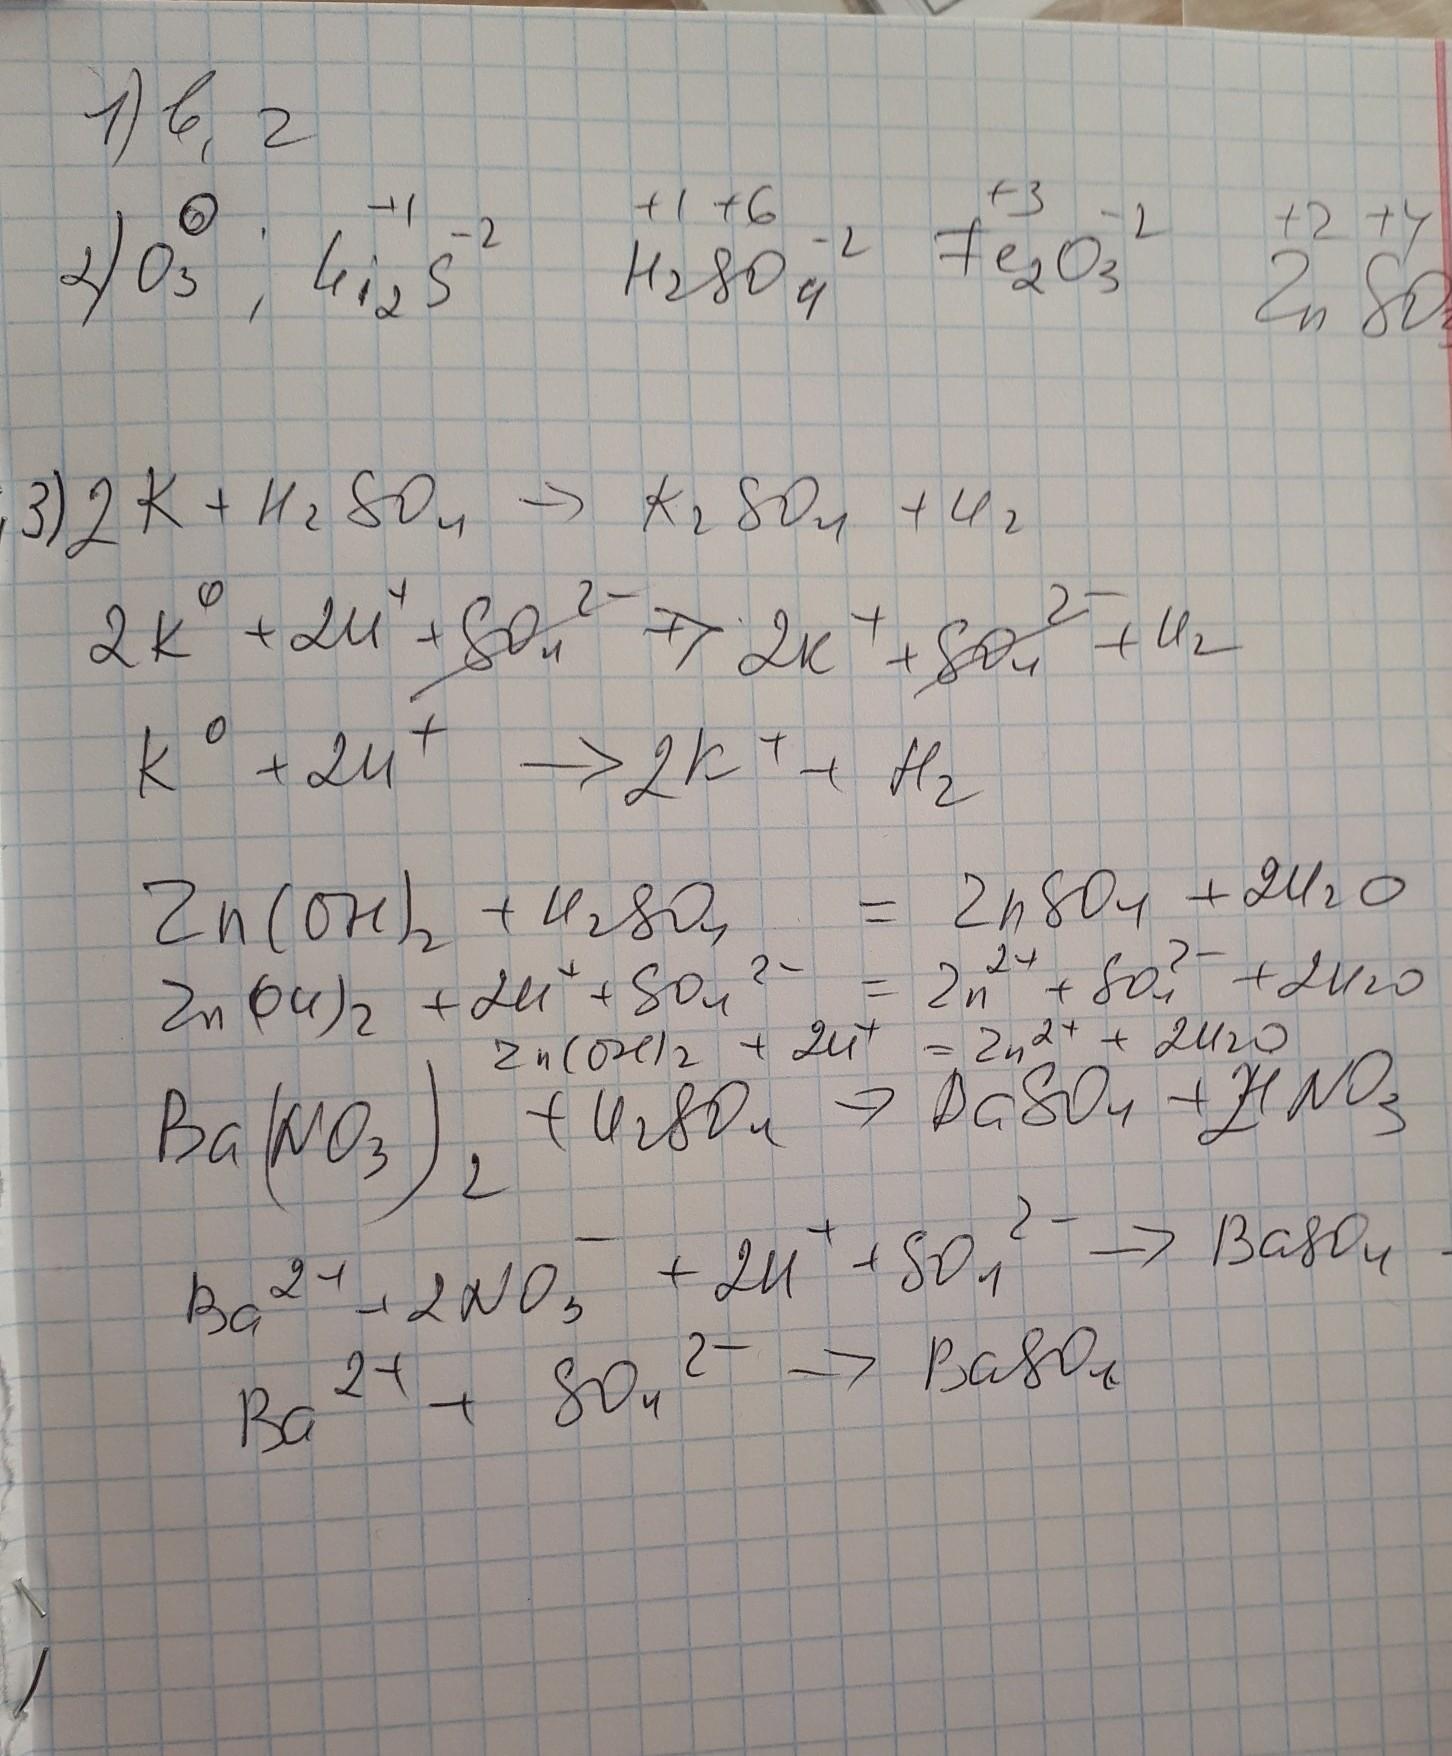 1) в, г
2) O₃⁰ ; Li₂⁺¹S⁻² H₂⁺¹S⁺⁶O₄⁻² Fe₂⁺³O₃⁻² Zn⁺²S⁺⁴O₃
3) 2K + H₂SO₄ → K₂SO₄ + H₂
2K⁰ + 2H⁺ + SO₄²⁻ → 2K⁺ + SO₄²⁻ + H₂
K⁰ + 2H⁺ → 2K⁺ + H₂
Zn(OH)₂ + H₂SO₄ = ZnSO₄ + 2H₂O
Zn(OH)₂ + 2H⁺ + SO₄²⁻ = Zn²⁺ + SO₄²⁻ + 2H₂O
Zn(OH)₂ + 2H⁺ = Zn²⁺ + 2H₂O
Ba(NO₃)₂ + H₂SO₄ → BaSO₄ + 2HNO₃
Ba²⁺ + 2NO₃⁻ + 2H⁺ + SO₄²⁻ → BaSO₄
Ba²⁺ + SO₄²⁻ → BaSO₄